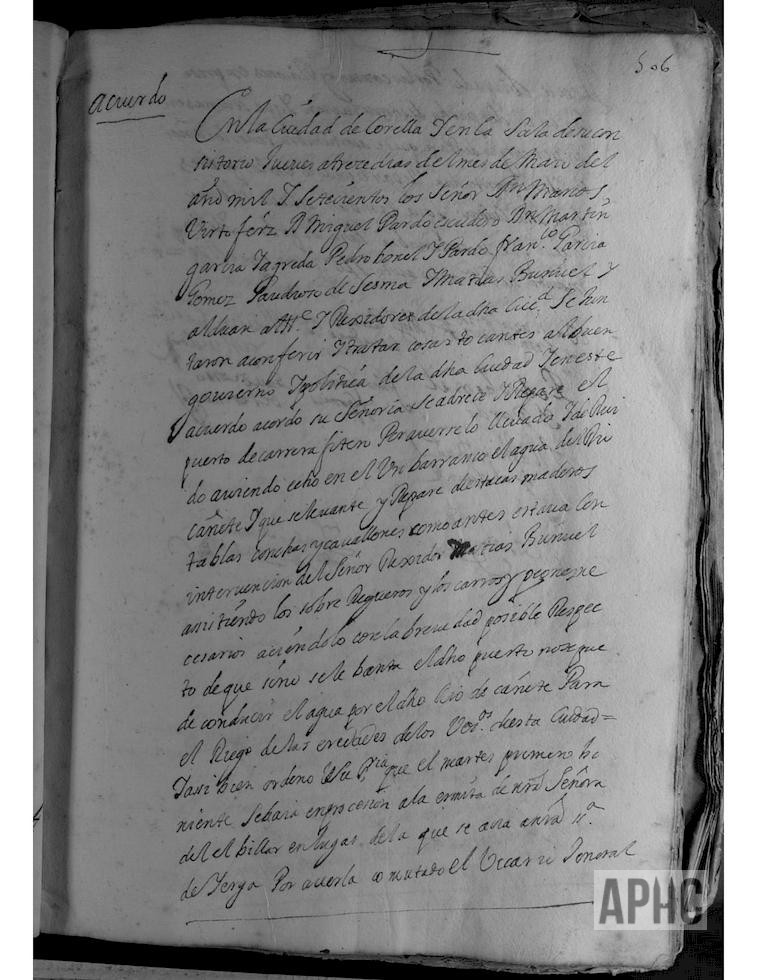 506
acuerdo
En la Ciudad de Corella Y en la Sala de su con
sistorio Jueves a trece dias del mes de Maio del
año mil Y Setecientos los Señor Dn Marcos
Virto ferz Dn Miguel Pardo escudero Dn Martin
garcia Jagreda Pedro bonel Y Pardo fran.co Garcia
Gomez de Sesma Y Matias Bunuel Y
alduan alld.e Y Rexidores de la dha Ciu.d Se Jun
taron a conferir Y tratar cosas tocantes al buen
gouierno Y politica de la dha Ciudad Y en este
acuerdo acordo su Señoria Se adrece Y Repare el
puerto de carrera fiten Por averselo lleuado Y de Rui
do auiendo echo en el Un barranco el agua del Rio
cañete Y que se leuante y Repare de estacas maderos
tablas conchas y cauallones como antes estaua Con
intervencion del Señor Rexidor Matias Bunuel
assistiendo los sobre Regueros y los carros y peones ne
cesarios aciendolo con la breuedad posible Respec
to de que sino se lebanta el dho puerto nose pue
de conducir el agua por el dho Rio de cañete Para
el Riego de las eredades de los Vec.os desta Ciudad=
Y assi bien ordeno Su S.ria que el martes primero bi
niente se baia en procesion a la ermita de nrã Señora
del el billar en lugar de la que se acia a nrã S.a
de Yerga Por auerla comutado el Vicario General
APHC